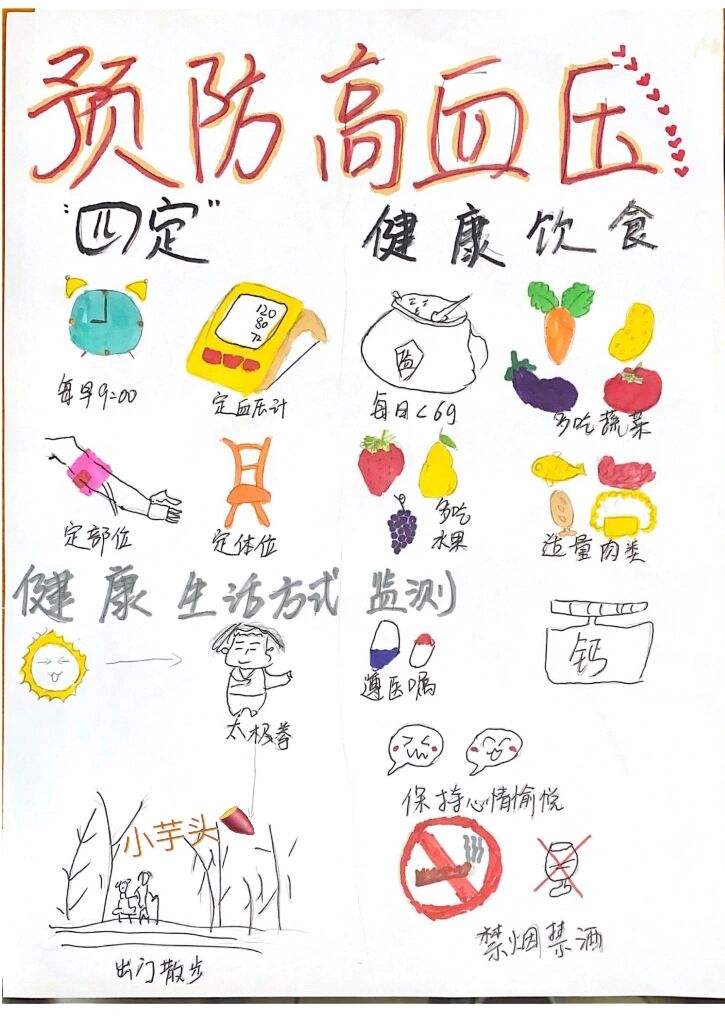 预防高血压
"四定"
健康饮食
120
80
72
每早9:00
定血压计
盐
每日<6g
多吃蔬菜
定部位
定体位
多吃
水果
适量肉类
健康生活方式监测
太极拳
遵医嘱
钙
保持心情愉悦
小芋头
出门散步
禁烟禁酒